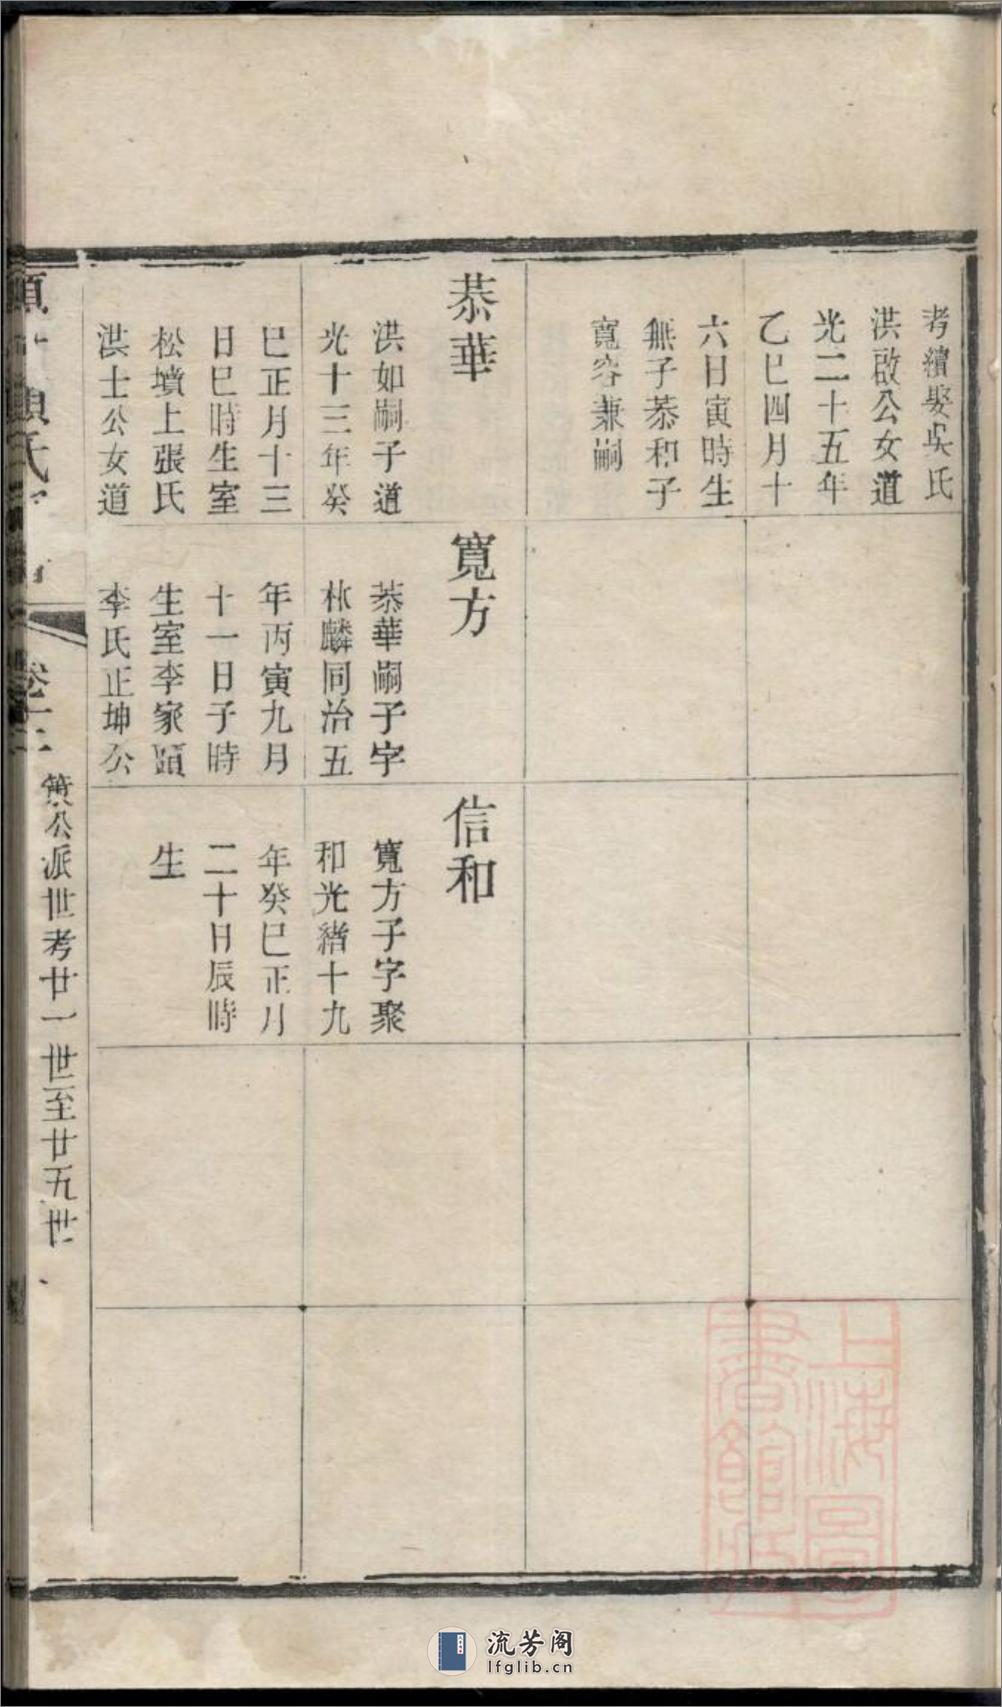 考續娶吳氏
洪啟公女道
光二十五年
乙巳四月十
六日寅時生
無子恭和子
寬容兼嗣
恭華
洪如嗣子道
光十三年癸
巳正月十三
日巳時生室
松墳上張氏
洪士公女道
寬方
恭華嗣子字
林麟同治五
年丙寅九月
十一日子時
生室李家頭
李氏正坤公
信和
寬方子字聚
和光緒十九
年癸巳正月
二十日辰時
生
氏
公派世考廿一世至廿五世
上海圖
書館
流芳阁
lfglib.cn